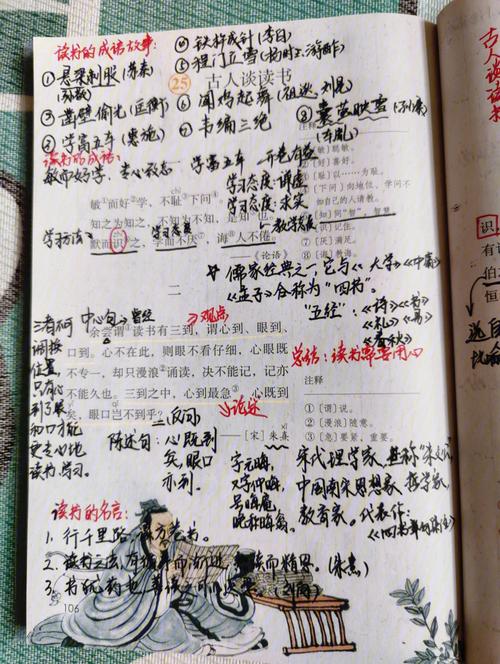 读书的成语故事:
①悬梁刺股(苏秦)
(孙敬)
③凿壁偷光(匡衡)
②学富五车(惠施)
④铁杵成针(李白)
⑤程门立雪(杨时、游酢)
25 古人谈读书
⑥闻鸡起舞(祖逖、刘琨)
⑦韦编三绝
⑧囊萤映雪(孙康)
(车胤)
读书的成语:
敏而好学、专心致志 学富五车 开卷有益
学习态度:谦虚
学习态度:求实
敏而好学,不耻下问。
chǐ
知之为知之,不知为不知,是知也。
默而识之,学而不厌,诲人不倦。
zhì
学习方法
学习态度
教学态度
——《论语》
〔好〕喜好。
〔耻〕以……为耻。
〔下问〕向地位、学问不
如自己的人请教。
〔知〕同“智”,智慧。
〔识〕记住。
〔厌〕满足。
〔诲〕教诲。
儒家经典之一,它与《大学》《中庸》
《孟子》合称为“四书”。
“五经”:《诗》《书》
《礼》《易》
《春秋》
二
中心句 曾经
观点
余尝谓读书有三到,谓心到、眼到、
口到。心不在此,则眼不看仔细,心眼既
不专一,却只漫浪诵读,决不能记,记亦
不能久也。三到之中,心到最急。心既到
矣,眼口岂不到乎?
——[宋]朱熹
三者不可
调换
位置,
只有心
到了眼
和口才能
更专心地
读书学习。
反问
论述
陈述句:心既到
矣,眼口
亦到。
总结:读书要用心
注释
①〔谓〕说。
②〔漫浪〕随意。
③〔急〕要紧,重要。
字元晦,
又字仲晦,
号晦庵,
晚称晦翁
宋代理学家,世称“朱文公”
中国南宋思想家、哲学家,
教育家。代表作:
《四书章句集注》
读书的名言:
1、行千里路,读万卷书。
2、读书之法,在循序而渐进,熟读而精思。(朱熹)
3、书犹药也,善读之可以医愚。(刘向)
106